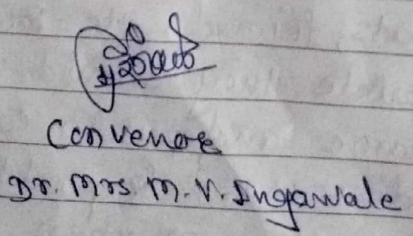 Convenor
Dr. Mrs. M. V. Ingawale